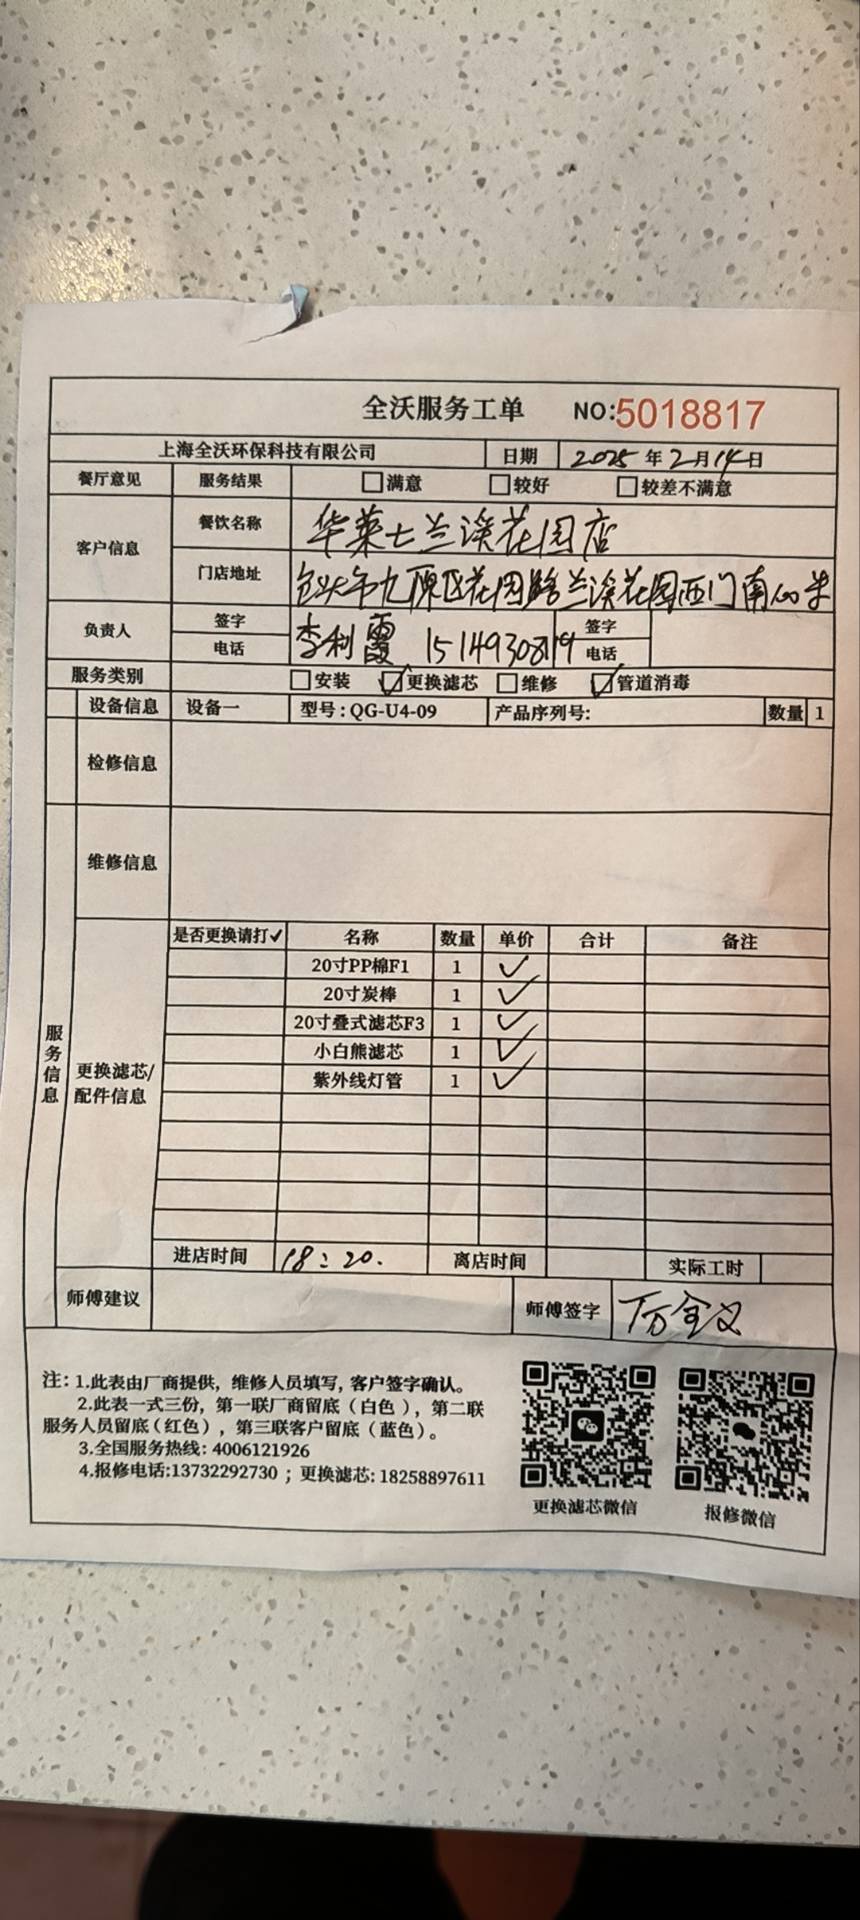 全沃服务工单 NO:5018817
上海全沃环保科技有限公司 日期 2025年2月14日
餐厅意见 服务结果 □满意 □较好 □较差不满意
客户信息 餐饮名称 华莱士兰溪花园店
门店地址 包头市九原区花园路兰溪花园西门南100米
负责人 签字 李利霞 签字
电话 15149308119 电话
服务类别 □安装 ☑更换滤芯 □维修 ☑管道消毒
设备信息 设备一 型号:QG-U4-09 产品序列号: 数量 1
检修信息
维修信息
服务信息
更换滤芯/配件信息
是否更换请打✓ 名称 数量 单价 合计 备注
20寸PP棉F1 1 ✓
20寸炭棒 1 ✓
20寸叠式滤芯F3 1 ✓
小白熊滤芯 1 ✓
紫外线灯管 1 ✓
进店时间 18:20. 离店时间 实际工时
师傅建议 师傅签字
注:1.此表由厂商提供，维修人员填写，客户签字确认。
2.此表一式三份，第一联厂商留底（白色），第二联
服务人员留底（红色），第三联客户留底（蓝色）。
3.全国服务热线: 4006121926
4.报修电话:13732292730 ；更换滤芯: 18258897611
更换滤芯微信 报修微信